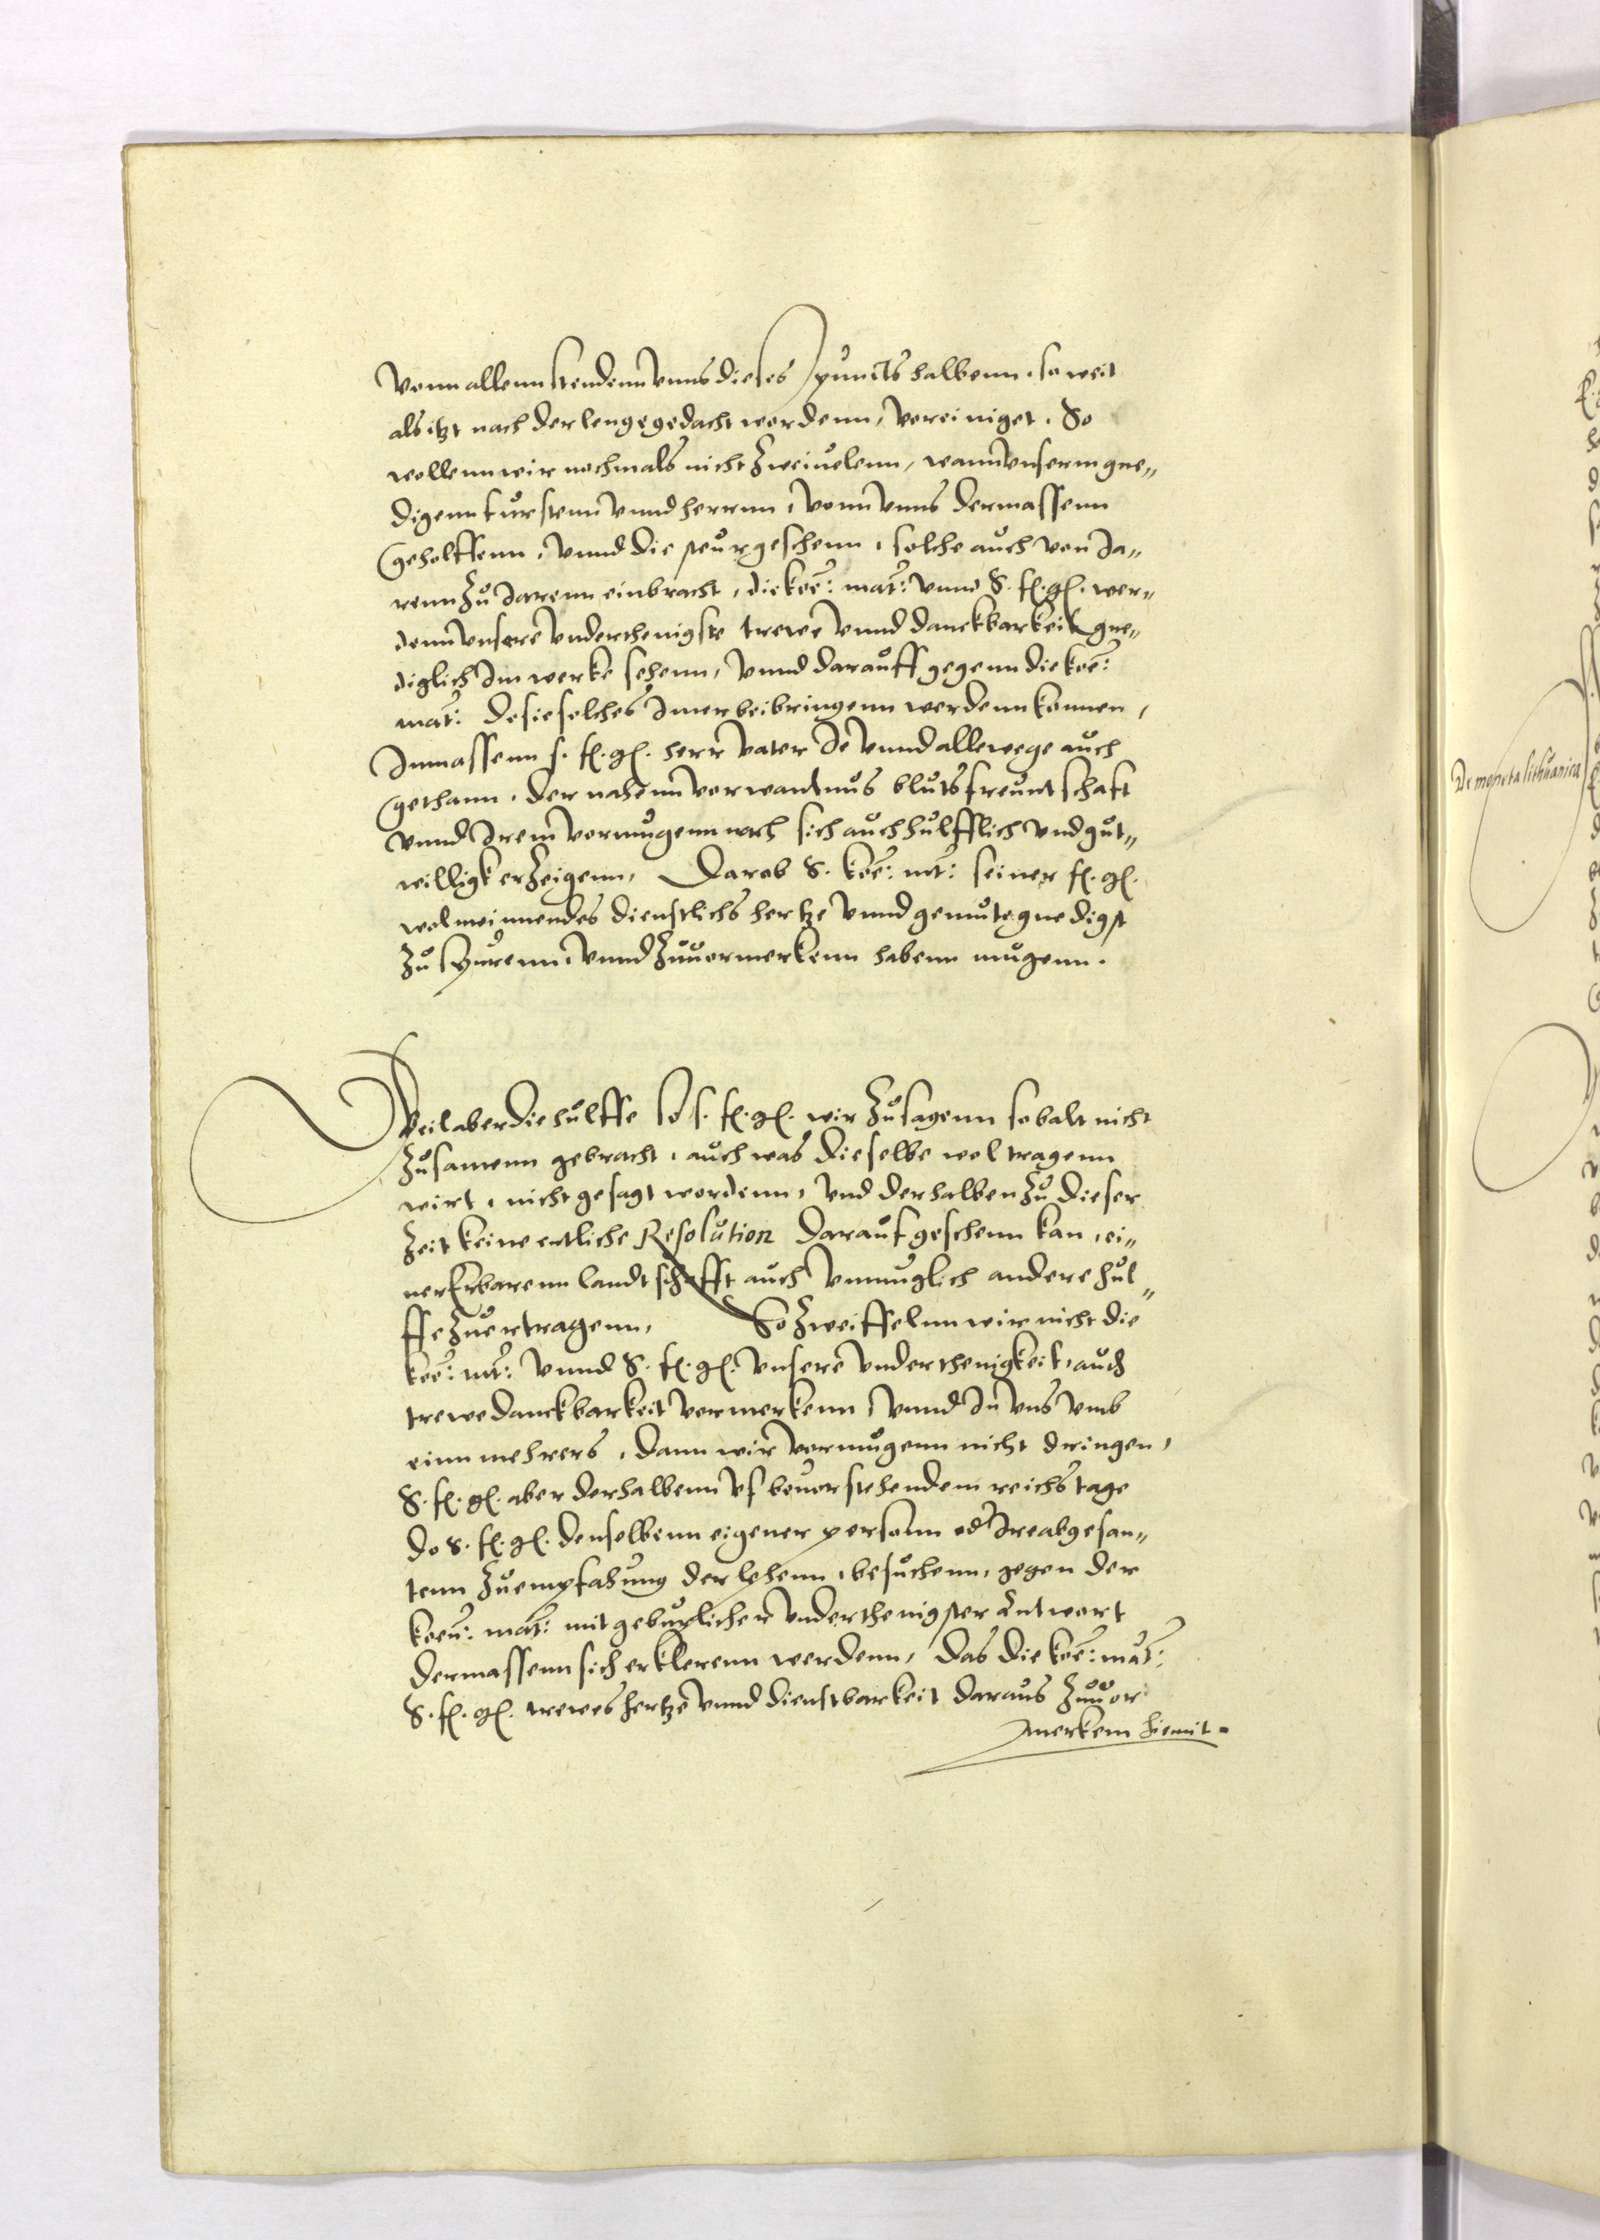 Vonn allenn stendenn vnns dieses puncts halbenn, so weit
als itzt nach der lenge gedacht wordenn, vereiniget. So
wollenn wir nochmals nicht zweiuelenn, wann vnserm gne„
digenn furstenn vnnd herrnn, vonn vnns dermassenn
geholffenn, vnnd die steur geschenn, solche auch von Ja„
renn zu Jarenn einbracht, die koe: mat: vnnd S. f. g. wer„
denn vnsere vnderthenigste trewe vnnd danckbarkeit gne„
diglich Im werke sehenn, vnnd darauff gegenn die koe:
mat: do sie solches Imer beibringenn werdenn konnen,
Inmassenn s. f. g. herr vater Je vnnd allewege auch
gethann, der nahenn vorwantnus blutsfreuntschaft
vnnd Irem vormugenn nach sich auch hulfflich vnd gut„
willigk erzeigenn, Darob S. koe: mt: seiner f. g.
wolmeinnendes dienstlichs hertze vnnd gemute gnedigst
zu spurenn, vnnd zuuormerkenn habenn mugenn.
Weil aber die hulffe so s. f. g. wir zusagenn so balt nicht
zusamenn gebracht, auch was dieselbe wol tragenn
wirt, nicht gesagt wordenn, vnd derhalben zu dieser
zeit keine entliche Resolution darauf geschenn kan, ei„
ner Erbarenn landtschafft auch vnmuglich andere hul„
ffe zuertragenn, So zweiffelnn wir nicht die
koe: mt: vnnd S. f. g. vnsere vnderthenigkeit, auch
trewe danckbarkeit vormerkenn, vnnd In vns vmb
einn mehrers, dann wir vormugenn nicht dringen,
S. f. g. aber derhalbenn vf beuorstehendem reichstage
do S. f. g. denselbenn eigener personn od Ire abgesan„
tenn zu empfahung der lehenn, besuchenn, gegen der
koen: mat: mit geburlicher vnderthenigster Antwort
dermassenn sich erklerenn werdenn, das die koe: mat:
S. f. g. trewes hertze vnnd dienstbarkeit daraus zuuor
merkenn hiemit.
De moneta lithuanica